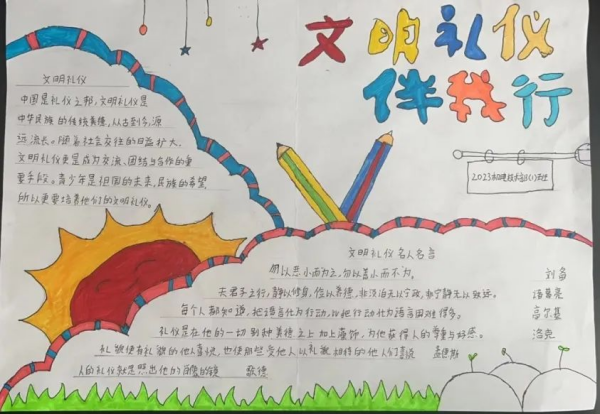 文明礼仪
伴我行
文明礼仪
中国是礼仪之邦，文明礼仪是
中华民族的传统美德，从古到今，源
远流长。随着社会交往的日益扩大，
文明礼仪更是成为交流、团结与合作的重
要手段。青少年是祖国的未来，民族的希望
所以更要培养他们的文明礼仪。
文明礼仪名人名言
勿以恶小而为之，勿以善小而不为。 刘备
夫君子之行，静以修身，俭以养德，非淡泊无以宁致，非宁静无以致远。 诸葛亮
每个人都知道，把语言化为行动，比把行动化为语言困难得多。 高尔基
礼仪是在他的一切别种美德之上加上藻饰，为他获得人的尊重与好感。 洛克
礼貌使有礼貌的他人喜悦，也使那些受他人以礼貌相待的他人们喜悦 孟德斯
人的礼仪就是照出他的肖像的镜 歌德